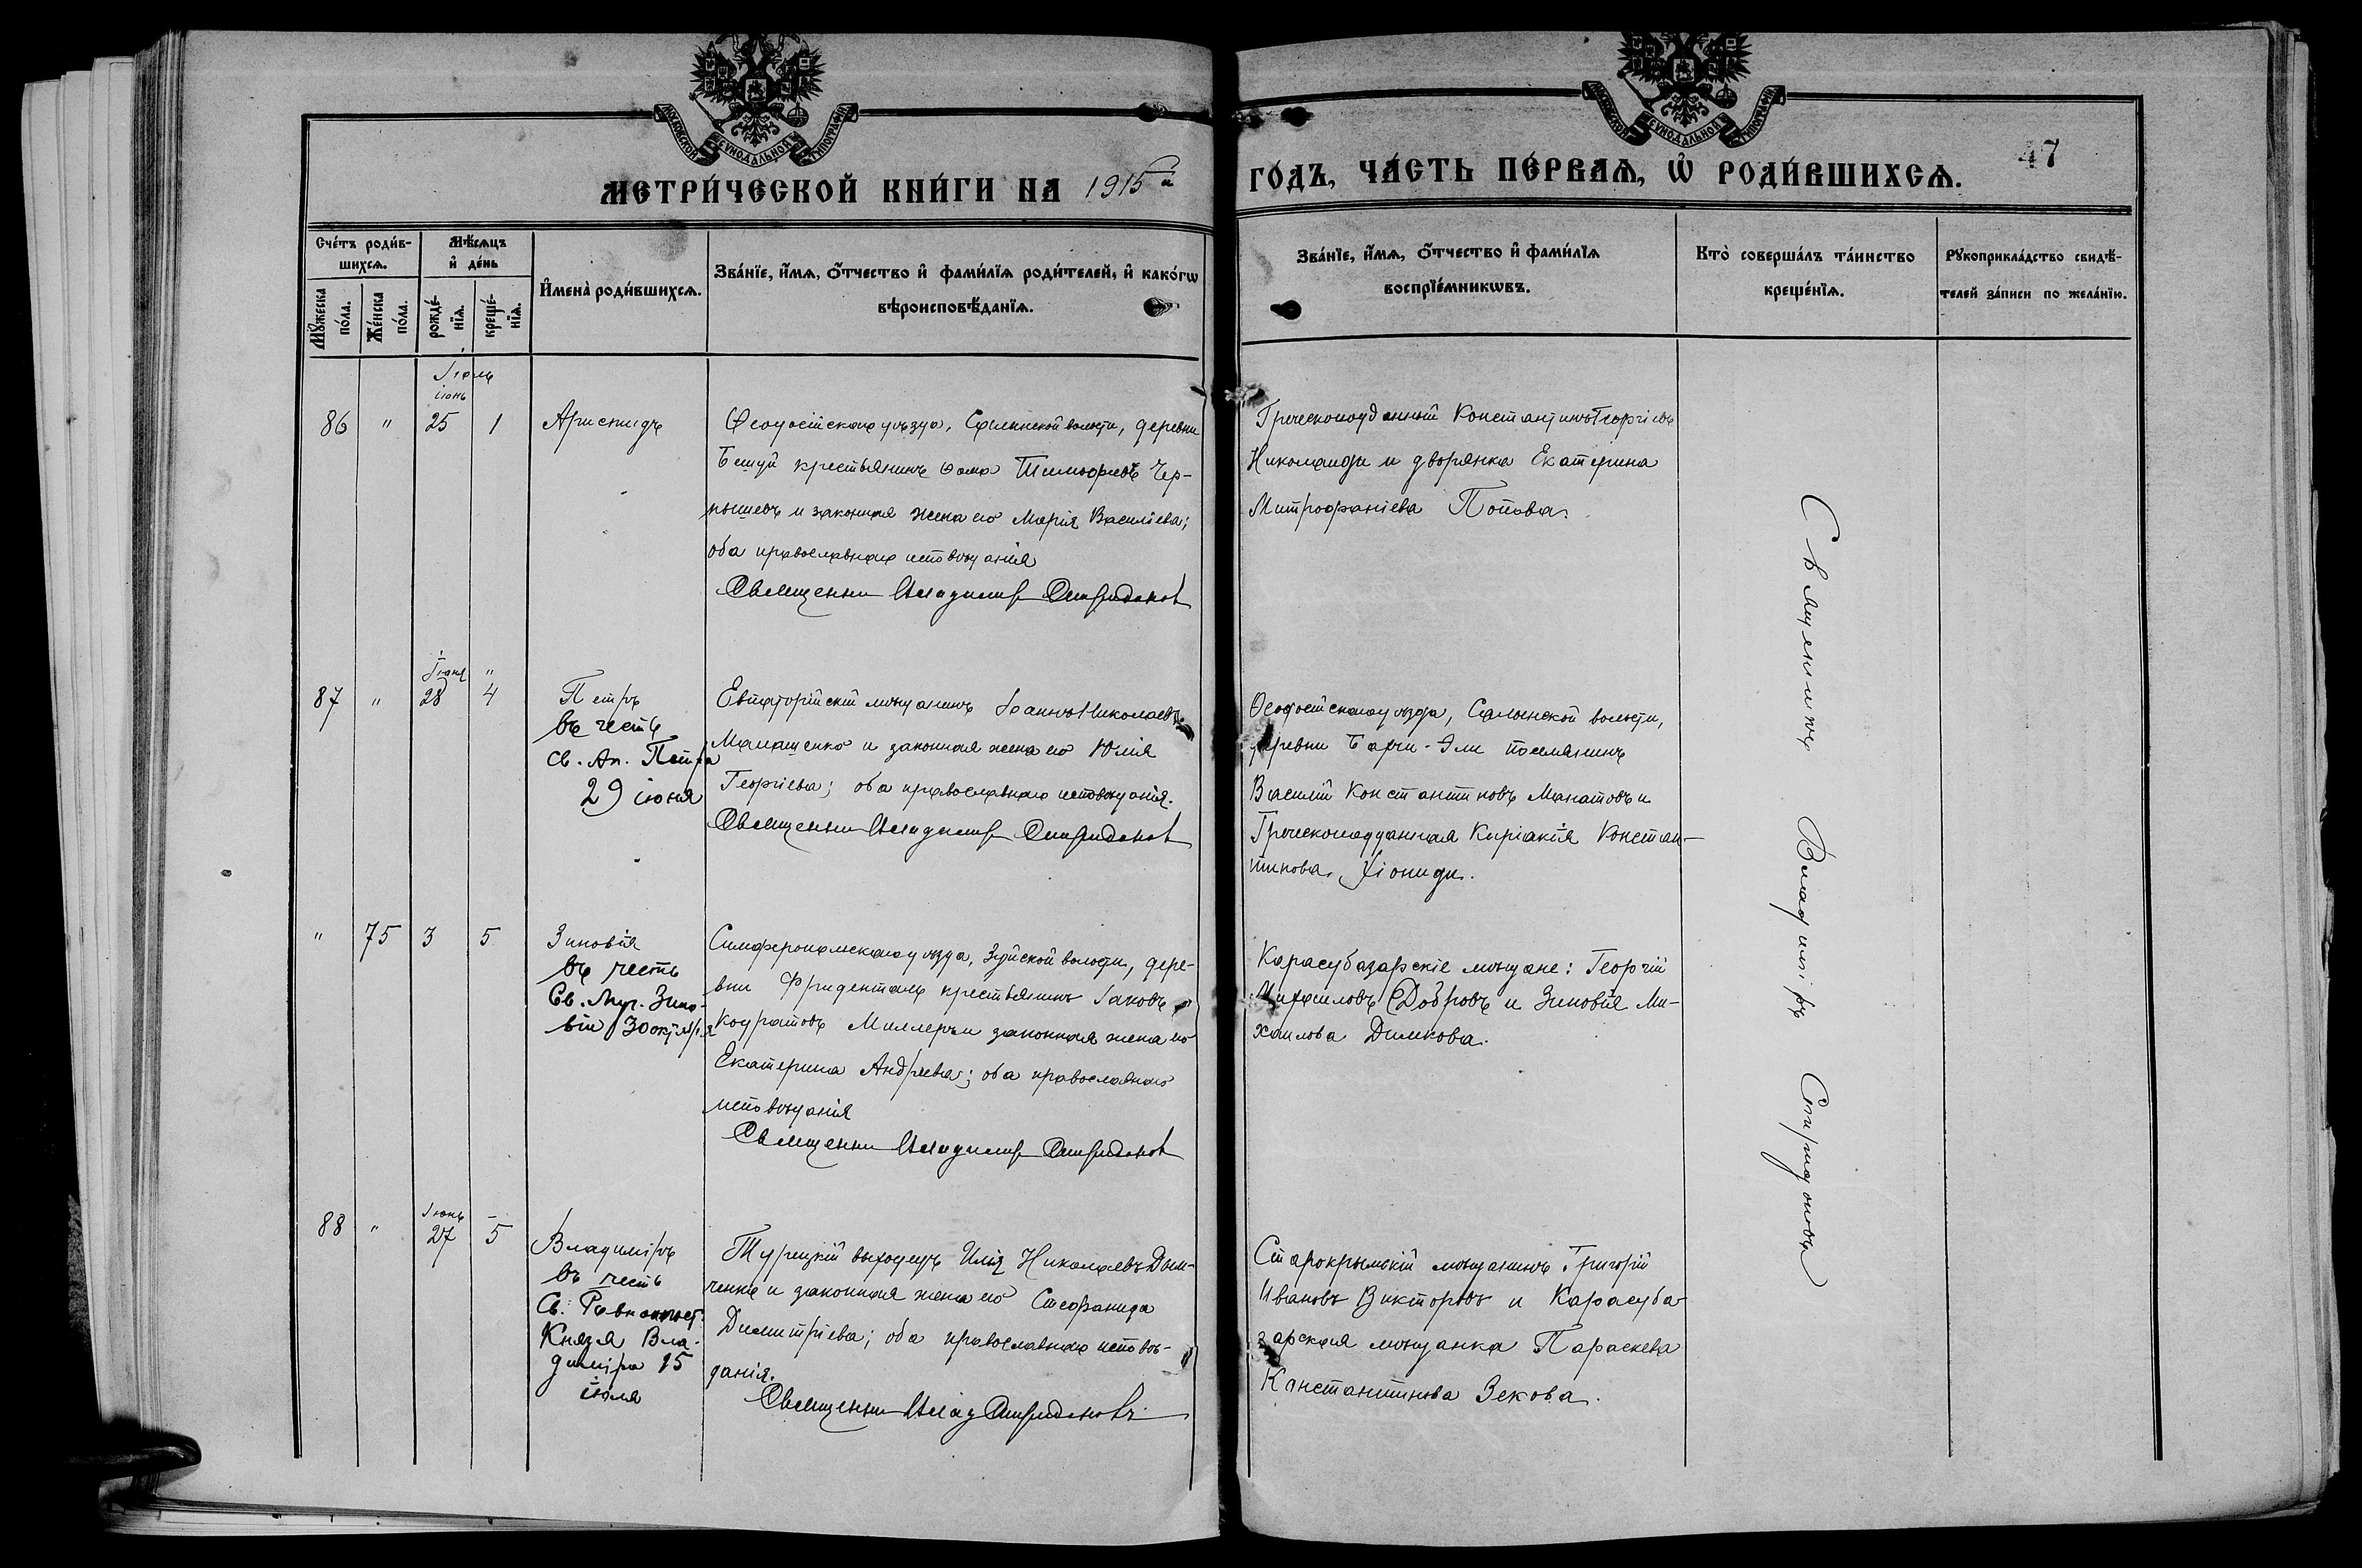 МОСКОВСКОЙ СѴНОДАЛЬНОЙ ТИПОГРАФІИ
МОСКОВСКОЙ СѴНОДАЛЬНОЙ ТИПОГРАФІИ
МЕТРИ́ЧЕСКОЙ КНИ́ГИ НА 1915й
ГО́ДЪ, ЧА́СТЬ ПЕ́РВАѦ, Ѡ҆ РОДИ́ВШИХСѦ.
47
Сче́тъ роди́в-
шихсѧ.
Мꙋ́жеска по́ла.
Же́нска по́ла.
Мѣ́сѧцъ
и҆ де́нь
рожде́-
нїѧ.
креще́-
нїѧ.
И҆мена̀ роди́вшихсѧ.
Зва́нїе, и҆́мѧ, ѻ҆́тчество и҆ фами́лїѧ роди́телей, и҆ како́гѡ
вѣроисповѣ́данїѧ.
Зва́нїе, и҆́мѧ, ѻ҆́тчество и҆ фами́лїѧ
воспрїе́мникѡвъ.
Кто̀ соверша́лъ та́инство
креще́нїѧ.
Рꙋкоприкла́дство свидѣ́-
телей за́писи по жела́нїю.
Іюль
іюнь
86 " 25 1 Аристидъ
Ѳеодосійскаго уѣзда, Салынской волости, деревни
Бешуй крестьянинъ Ѳома Тимоѳеевъ Чер-
нышевъ и законная жена его Марія Василіева;
оба православнаго исповѣданія
Священникъ Владимир Спиридонов
Греческоподданный Константинъ Георгіевъ
Николаиди и дворянка Екатерина
Митрофаніева Попова.
Іюня "
87 " 28 4 Петръ
въ честь
св. Ап. Петра
29 іюня
Евпаторійскій мѣщанинъ Іоаннъ Николаевъ
Малашенко и законная жена его Юлія
Георгіева; оба православнаго исповѣданія.
Священникъ Владимир Спиридонов
Ѳеодосійскаго уѣзда, Салынской волости,
деревни поселянинъ
Василій Константиновъ Манатовъ и
Греческоподданная Киріакія Констан-
тинова
" 75 3 5 Зиновія
въ честь
Св. Муч. Зино-
віи 30 октября
Симферопольскаго уѣзда, Зуйской волости, дере-
вни Фриденталь крестьянинъ Іаковъ
Кодратовъ Миллеръ и законная жена его
Екатерина Андреева; оба православнаго
исповѣданія
Священникъ Владимир Спиридонов
Карасубазарскіе мѣщане: Георгій
Михаиловъ Добровъ и Зиновія Ми-
хаилова Димкова.
Іюнь
88 " 27 5 Владиміръ
въ честь
Св. Равноапост.
Князя Вла-
диміра 15
іюля
Турецкій выходецъ Илія Николаевъ Дым-
ченко и законная жена его Стефанида
Димитріева; оба православнаго исповѣ-
данія.
Священникъ Влад Спиридоновъ
Старокрымскій мѣщанинъ Григорій
Ивановъ Викторовъ и Карасуба-
зарская мѣщанка Параскева
Константинова Зекова.
Священникъ Владиміръ Спиридоновъ